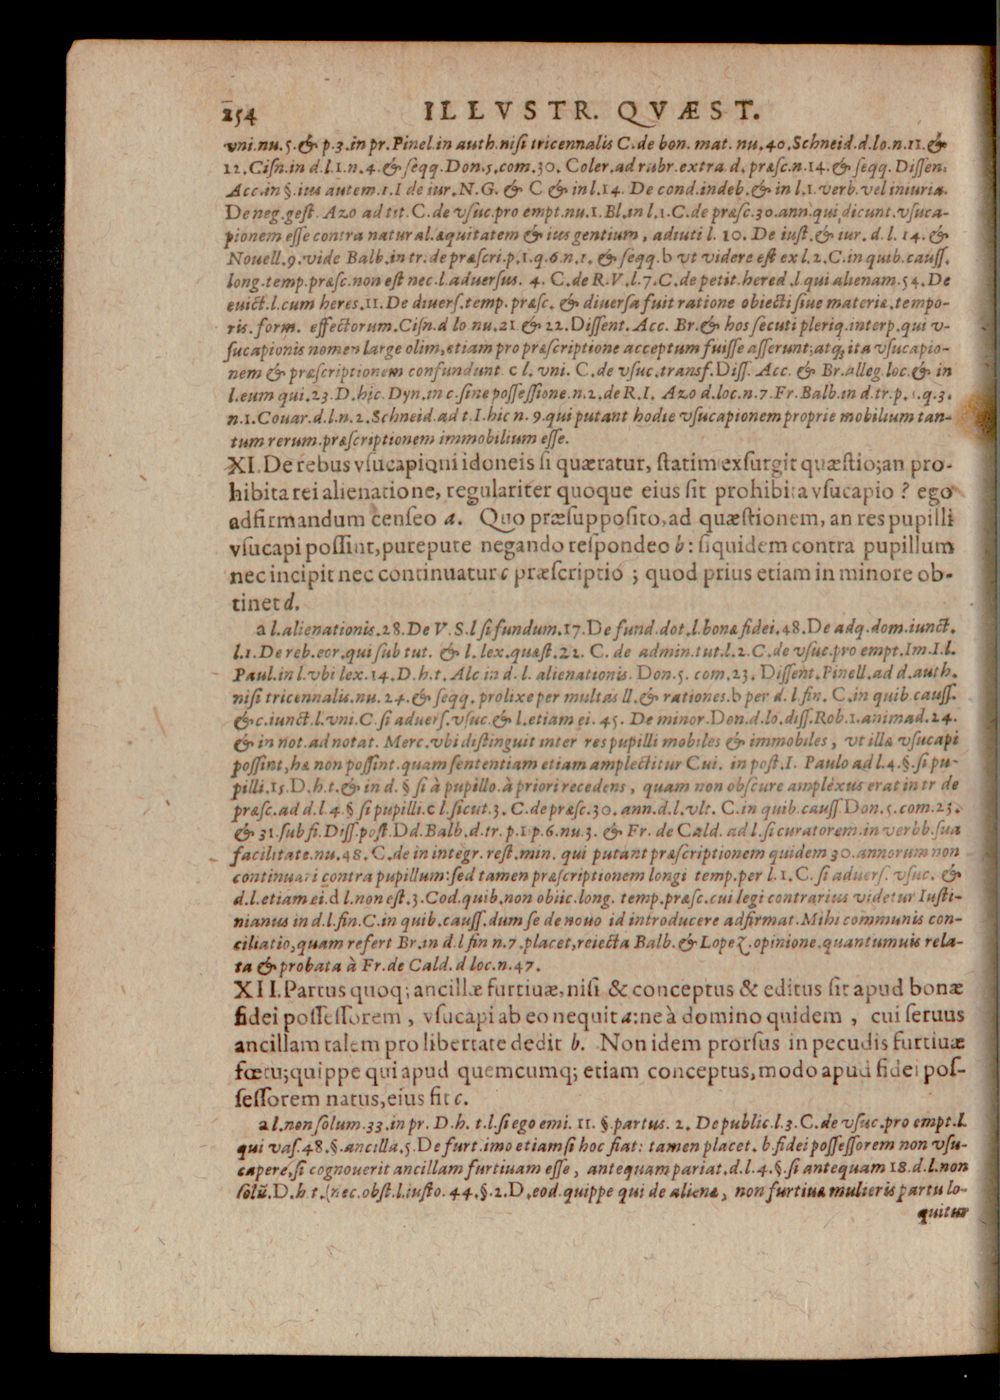 254 ILLVSTR. QVÆST.
vni.nu.5.& p.3.in pr.Pinel.in auth.nisi tricennalis C.de bon. mat. nu.40.Schneid.d.lo.n.11.&
12.Cisn.in d.l.1.n.4.& seqq.Don.5.com.30. Coler.ad rubr.extra d. præsc.n.14.& seqq. Dissen.
Acc.in §.ius autem.1.I de iur.N.G. & C & in l.14. De cond.indeb.& in l.1.verb.vel iniuria.
De neg.gest. Azo ad tit.C.de vsuc.pro empt.nu.1.Bl.in l.1.C.de præsc.30.ann.qui dicunt.vsuca-
pionem esse contra natural.æquitatem & ius gentium, adiuti l. 10. De iust.& iur. d. l. 14. &
Nouell.9.vide Balb.in tr.de præscri.p.1.q.6.n.1. & seqq.b vt videre est ex l.2.C.in quib.causs.
long.temp.præsc.non est nec.l.aduersus. 4. C.de R.V.l.7.C.de petit.hered.l.qui alienam.54.De
euict.l.cum heres.11.De diuers.temp.præsc. & diuersa fuit ratione obiecti siue materiæ.tempo-
ris.form. effectorum.Cisn.d lo nu.21.& 22.Dissent.Acc. Br.& hos secuti pleriq.interp.qui v-
sucapionis nomen large olim,etiam pro præscriptione acceptum fuisse asserunt;atq́; ita vsucapio-
nem & præscriptionem confundunt c l. vni. C.de vsuc.transf.Diss. Acc. & Br.alleg.loc.& in
l.eum qui.23.D.hic. Dyn.in c.sine possessione.n.2.de R.I. Azo d.loc.n.7.Fr.Balb.in d.tr.p.1.q.3.
n.1.Couar.d.l.n.2.Schneid.ad t.I.hic n. 9.qui putant hodie vsucapionem proprie mobilium tan-
tum rerum.præscriptionem immobilium esse.
XI.De rebus vsucapioni idoneis si quæratur, statim exsurgit quæstio;an pro-
hibita rei alienatione, regulariter quoque eius sit prohibita vsucapio ? ego
adfirmandum censeo a. Quo præsupposito,ad quæstionem, an res pupilli
vsucapi possint,purepute negando respondeo b: siquidem contra pupillum
nec incipit nec continuatur c præscriptio ; quod prius etiam in minore ob-
tinet d.
a l.alienationis.28.De V.S.l si fundum.17.De fund.dot.l.bonæ fidei.48.De adq.dom.iunct.
l.1.De reb.eor.qui sub tut. & l. lex.quæst.22. C. de admin.tut.l.2.C.de vsuc.pro empt.Im.I.l.
Paul.in l.vbi lex.14.D.h.t. Alc in d. l. alienationis. Don.5. com.23. Dissent.Pinell.ad d.auth.
nisi tricennalis.nu. 24.& seqq. prolixe per multas ll.& rationes.b per d.l fin. C.in quib causs.
& c.iunct.l.vni.C.si aduers.vsuc.& l.etiam ei. 45. De minor.Don.d.lo.diss.Rob.1.animad.24.
& in not.ad notat. Merc.vbi distinguit inter res pupilli mobiles & immobiles, vt illæ vsucapi
possint,hæ non possint.quam sententiam etiam amplectitur Cui. in post.I. Paulo ad l.4.§.si pu-
pilli.15.D.h.t.& in d.§ si à pupillo.à priori recedens, quam non obscure amplexus erat in tr de
præsc.ad d.l.4.§ si pupilli.c l.sicut.3. C.de præsc.30. ann.d.l.vlt. C.in quib.causs.Don.5.com.23.
& 31.sub fi.Diss.post.Dd.Balb.d.tr.p.1 p.6.nu.3. & Fr. de Cald. ad l.si curatorem.in verbb.sua
facilitate.nu.48. C.de in integr.rest.min. qui putant præscriptionem quidem 30.annorum non
continuari contra pupillum:sed tamen præscriptionem longi temp.per l.1.C. si aduers. vsuc. &
d.l.etiam ei.d l.non est.3.Cod.quib.non obiic.long. temp.præsc.cui legi contrarius videtur Iusti-
nianus in d.l.fin.C.in quib.causs.dum se de nouo id introducere adfirmat.Mihi communis con-
ciliatio,quam refert Br.in d.l fin n.7.placet,reiecta Balb.& Lopez.opinione.quantumuis rela-
ta & probata à Fr.de Cald.d loc.n.47.
XII.Partus quoq; ancillæ furtiuæ,nisi & conceptus & editus sit apud bonæ
fidei possessorem , vsucapi ab eo nequit a:ne à domino quidem , cui seruus
ancillam talem pro libertate dedit b. Non idem prorsus in pecudis furtiuæ
fœtu;quippe qui apud quemcumq; etiam conceptus,modo apud fidei pos-
sessorem natus,eius fit c.
a l.non solum.33.in pr. D.h. t.l.si ego emi. 11 §.partus. 2. De public.l.3.C.de vsuc.pro empt.l.
qui vas.48.§.ancilla.5.De furt.imo etiam si hoc fiat: tamen placet. b.fidei possessorem non vsu-
capere,si cognouerit ancillam furtiuam esse, antequam pariat.d.l.4.§.si antequam 18.d.l.non
solū.D.h.t.(nec.obst.l.iusto.44.§.2.D.eod.quippe qui de aliena, non furtiua mulieris partu lo-
quitur